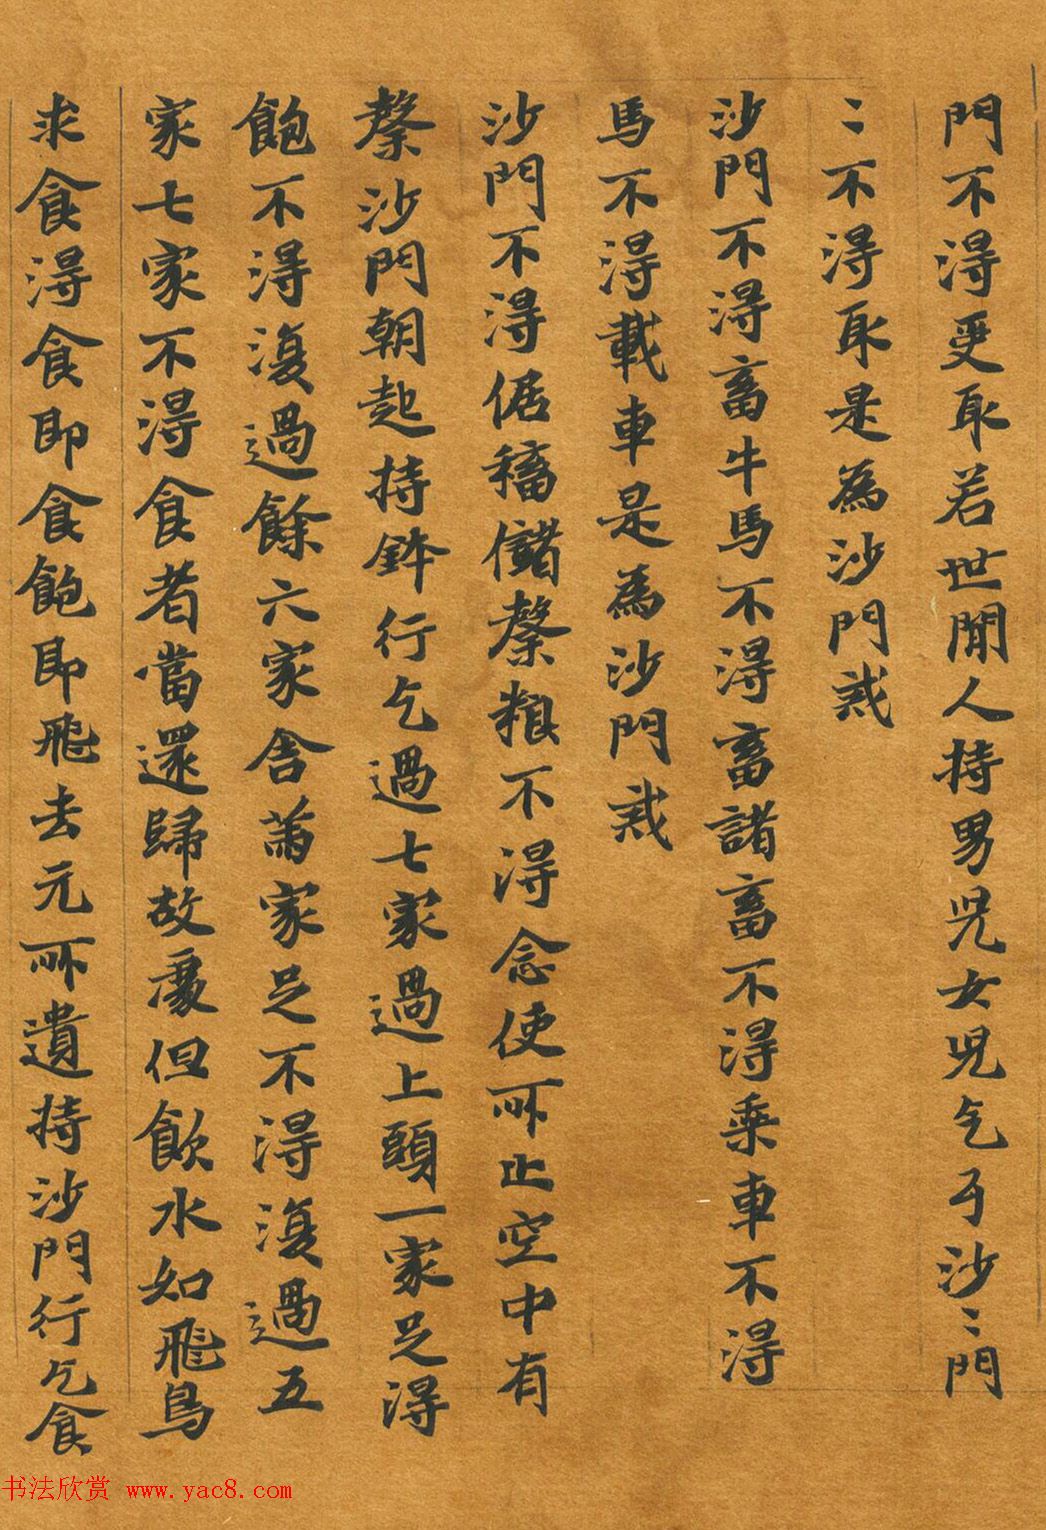 門不得更取若世閒人持男児女児乞于沙〻門
〻不得取是為沙門戒
沙門不得畜牛馬不得畜諸畜不得乗車不得
馬不得載車是為沙門戒
沙門不得倨穡儲𥢶粮不得念使所止空中有
𥢶沙門朝起持鉢行乞過七家過上頭一家足得
飽不得復過餘六家舎若家足不得復過五
家七家不得食者當還歸故處但飲水如飛鳥
求食得食即食飽即飛去元所遺持沙門行乞食
书法欣赏 www.yac8.com